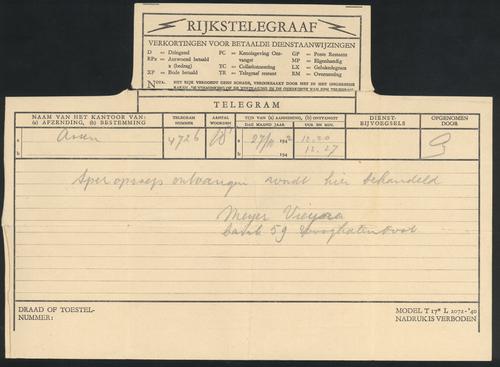 RIJKSTELEGRAAF
VERKORTINGEN VOOR BETAALDE DIENSTAANWIJZINGEN
D = Dringend
RPx = Antwoord betaald x (bedrag)
XP = Bode betaald
PC = Kennisgeving Ontvangst
TC = Collationneering
TR = Telegraaf restant
GP = Poste Restante
MP = Eigenhandig
LX = Gelukstelegram
RM = Overseining
NOTA. HET RIJK VERGOEDT GEEN SCHADE, VEROORZAAKT DOOR HET IN HET ONGEREEDE
TELEGRAM
NAAM VAN HET KANTOOR VAN: (a) AFZENDING, (b) BESTEMMING
TELEGRAM NUMMER
AANTAL WOORDEN
TIJD VAN (a) AANNEMING, (b) ONTVANGST
DAG MAAND JAAR
UUR EN MIN.
DIENST-BIJVOEGSELS
OPGENOMEN DOOR
a Assen 4726 27/11 1942 a 12.20
b 194 b 12.27
Sper opgaaf ontvangen wordt hier behandeld
Meyer
59
DRAAD OF TOESTEL-NUMMER:
MODEL T 17* L 2072-'40
NADRUK VERBODEN